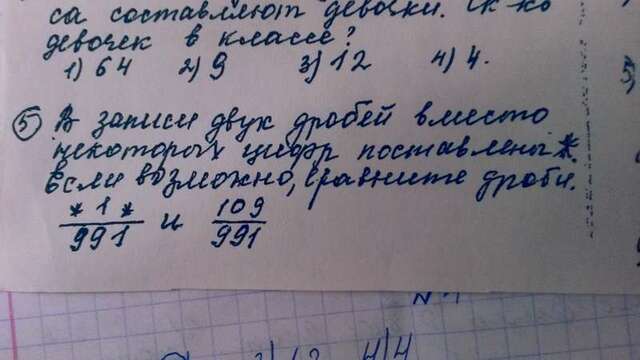 са составляют девочки. Ск-ко
девочек в классе?
1) 64 2) 9 3) 12 4) 4.
⑤ В записи двух дробей вместо
некоторых цифр поставлены *.
Если возможно, сравните дроби.
*1*/991 и 109/991